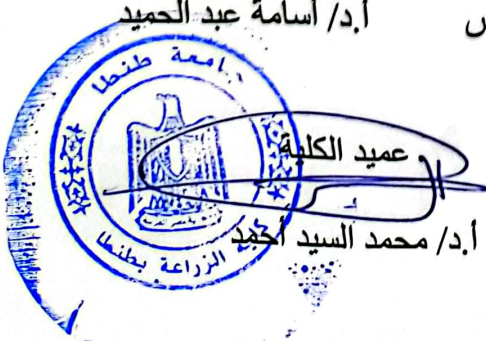 أ.د/ أسامة عبد الحميد
جامعة طنطا
عميد الكلية
أ.د/ محمد السيد أحمد
الزراعة بطنطا